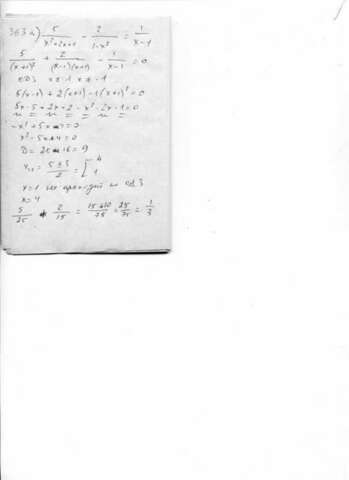 363 а) 5/(x²+2x+1) - 2/(1-x²) = 1/(x-1)
5/(x+1)² + 2/(x-1)(x+1) - 1/(x-1) = 0
ОДЗ x≠1 x≠-1
5(x-1) + 2(x+1) - 1(x+1)² = 0
5x-5+2x+2-x²-2x-1=0
-x²+5x-4=0
x²-5x+4=0
D=25-16=9
x₁,₂ = (5±3)/2 = [4 1
x=1 не ОДЗ
x=4
5/25 + 2/15 = (15+10)/75 = 25/75 = 1/3